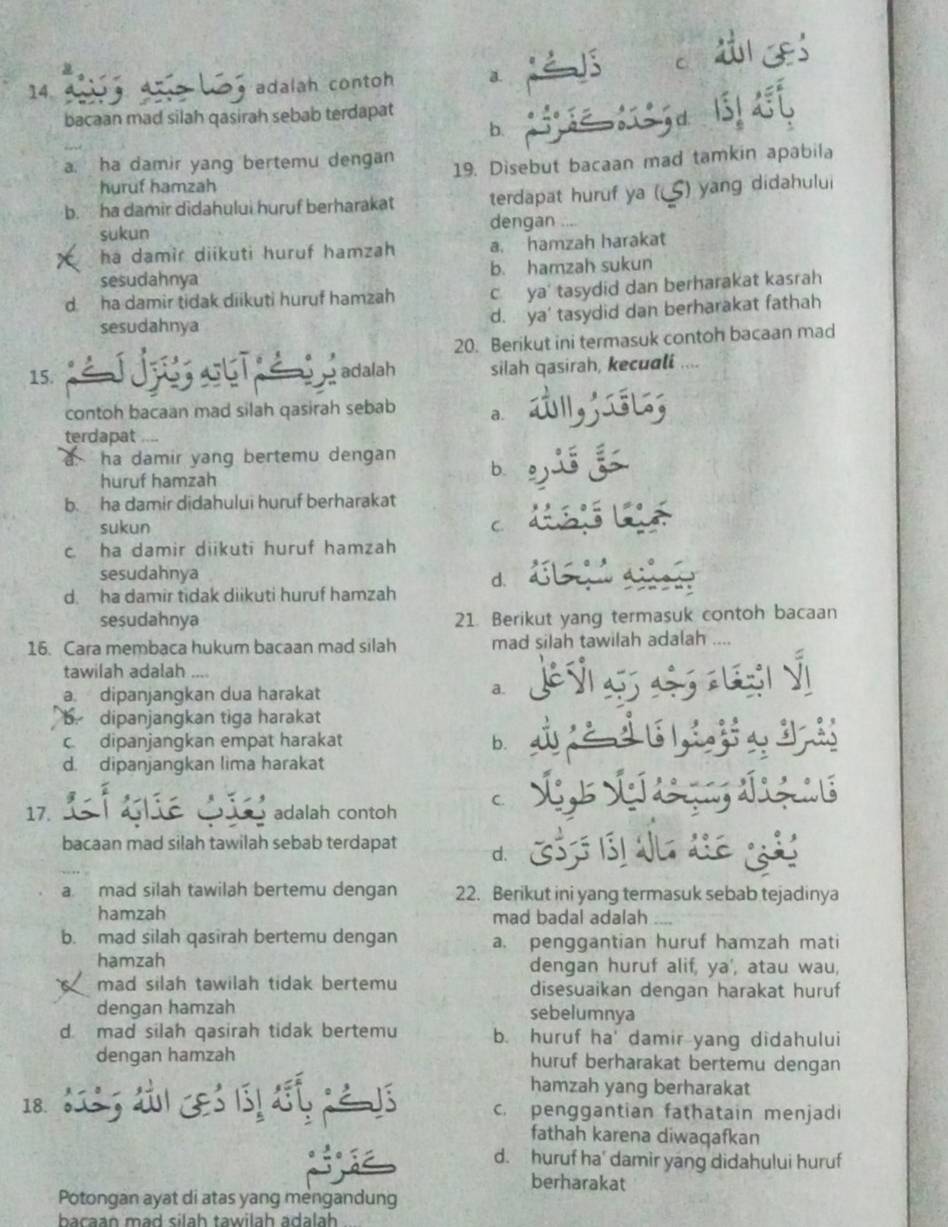 14. وَصَاحِبَتِهِ وَبَنِيْهِ adalah contoh
bacaan mad silah qasirah sebab terdapat
....
a. ha damir yang bertemu dengan
huruf hamzah
b. ha damir didahului huruf berharakat
sukun
ha damir diikuti huruf hamzah
sesudahnya
d. ha damir tidak diikuti huruf hamzah
sesudahnya
15. يُرِيْكُمْ آيَاتِهِ وَيُنَزِّلُ لَكُمْ adalah
contoh bacaan mad silah qasirah sebab
terdapat ....
a. ha damir yang bertemu dengan
huruf hamzah
b. ha damir didahului huruf berharakat
sukun
c. ha damir diikuti huruf hamzah
sesudahnya
d. ha damir tidak diikuti huruf hamzah
sesudahnya
16. Cara membaca hukum bacaan mad silah
tawilah adalah ....
a. dipanjangkan dua harakat
b. dipanjangkan tiga harakat
c. dipanjangkan empat harakat
d. dipanjangkan lima harakat
17. يُعَذِّبُ عَذَابَهُ أَحَدٌ adalah contoh
bacaan mad silah tawilah sebab terdapat
....
a. mad silah tawilah bertemu dengan
hamzah
b. mad silah qasirah bertemu dengan
hamzah
mad silah tawilah tidak bertemu
dengan hamzah
d. mad silah qasirah tidak bertemu
dengan hamzah
18. ذٰلِكُمْ بِأَنَّهُ إِذَا دُعِيَ اللهُ وَحْدَهُ
كَفَرْتُمْ
Potongan ayat di atas yang mengandung
bacaan mad silah tawilah adalah ....
a. ذٰلِكُمْ
c. دُعِيَ اللهُ
b. وَحْدَهُ كَفَرْتُمْ
d. بِأَنَّهُ إِذَا
19. Disebut bacaan mad tamkin apabila
terdapat huruf ya (ي) yang didahului
dengan ....
a. hamzah harakat
b. hamzah sukun
c. ya' tasydid dan berharakat kasrah
d. ya' tasydid dan berharakat fathah
20. Berikut ini termasuk contoh bacaan mad
silah qasirah, kecuali ....
a. وَمَاقَدَرُوااللهَ
b. حَقَّ قَدْرِهِ
c. جَمِيْعًا قَبْضَتُهُ
d. بِيَمِيْنِهِ سُبْحَانَهُ
21. Berikut yang termasuk contoh bacaan
mad silah tawilah adalah ....
a. إِلَّا ابْتِغَاءَ وَجْهِ رَبِّهِ الْأَعْلَى
b. يُشْرَكْ بِهِ تُؤْمِنُوْا فَالْحُكْمُ لِلّٰهِ
c. فَاسْجُدْلَهُ وَسَبِّحْهُ لَيْلًا طَوِيْلًا
d. يُغْنِيْ عَنْهُ مَالُهُ إِذَا تَرَدَّى
22. Berikut ini yang termasuk sebab tejadinya
mad badal adalah ....
a. penggantian huruf hamzah mati
dengan huruf alif, ya', atau wau,
disesuaikan dengan harakat huruf
sebelumnya
b. huruf ha' damir yang didahului
huruf berharakat bertemu dengan
hamzah yang berharakat
c. penggantian fathatain menjadi
fathah karena diwaqafkan
d. huruf ha' damir yang didahului huruf
berharakat